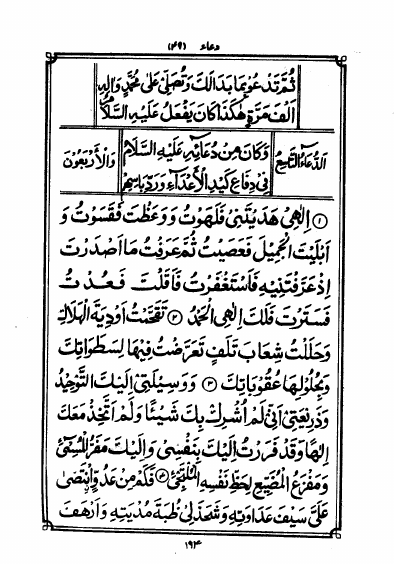 دعاء (۴۹)
ثُمَّ تَدْعُوْ بِمَا بَدَا لَكَ وَتُصَلِّيْ عَلٰى مُحَمَّدٍ وَاٰلِهٖ
اَلْفَ مَرَّةٍ هٰكَذَا كَانَ يَفْعَلُ عَلَيْهِ السَّلَامُ
اَلدُّعَاءُ التَّاسِعُ
وَكَانَ مِنْ دُعَائِهٖ عَلَيْهِ السَّلَامُ
فِيْ دِفَاعِ كَيْدِ الْاَعْدَاءِ وَرَدِّ بَاْسِهِمْ
وَالْاَرْبَعُوْنَ
① اِلٰهِيْ هَدَيْتَنِيْ فَلَهَوْتُ وَوَعَظْتَ فَقَسَوْتُ وَ
اَبْلَيْتَ الْجَمِيْلَ فَعَصَيْتُ ثُمَّ عَرَفْتُ مَا اَصْدَرْتَ
اِذْ عَرَّفْتَنِيْهِ فَاسْتَغْفَرْتُ فَاَقَلْتَ فَعُدْتُ
فَسَتَرْتَ فَلَكَ اِلٰهِي الْحَمْدُ ② تَقَحَّمْتُ اَوْدِيَةَ الْهَلَاكِ
وَحَلَلْتُ شِعَابَ تَلَفٍ تَعَرَّضْتُ فِيْهَا لِسَطَوَاتِكَ
وَبِحُلُوْلِهَا عُقُوْبَاتِكَ ③ وَوَسِيْلَتِيْ اِلَيْكَ التَّوْحِيْدُ
وَذَرِيْعَتِيْ اَنِّيْ لَمْ اُشْرِكْ بِكَ شَيْئًا وَلَمْ اَتَّخِذْ مَعَكَ
اِلٰهًا وَقَدْ فَرَرْتُ اِلَيْكَ بِنَفْسِيْ وَاِلَيْكَ مَفَرُّ الْمُسِيْءِ
وَمَفْزَعُ الْمُضَيِّعِ لِحَظِّ نَفْسِهِ الْمُلْتَجِئِ ④ فَكَمْ مِنْ عَدُوٍّ انْتَضٰى
عَلَيَّ سَيْفَ عَدَاوَتِهٖ وَشَحَذَ لِيْ ظُبَةَ مُدْيَتِهٖ وَاَرْهَفَ
۱۹۴